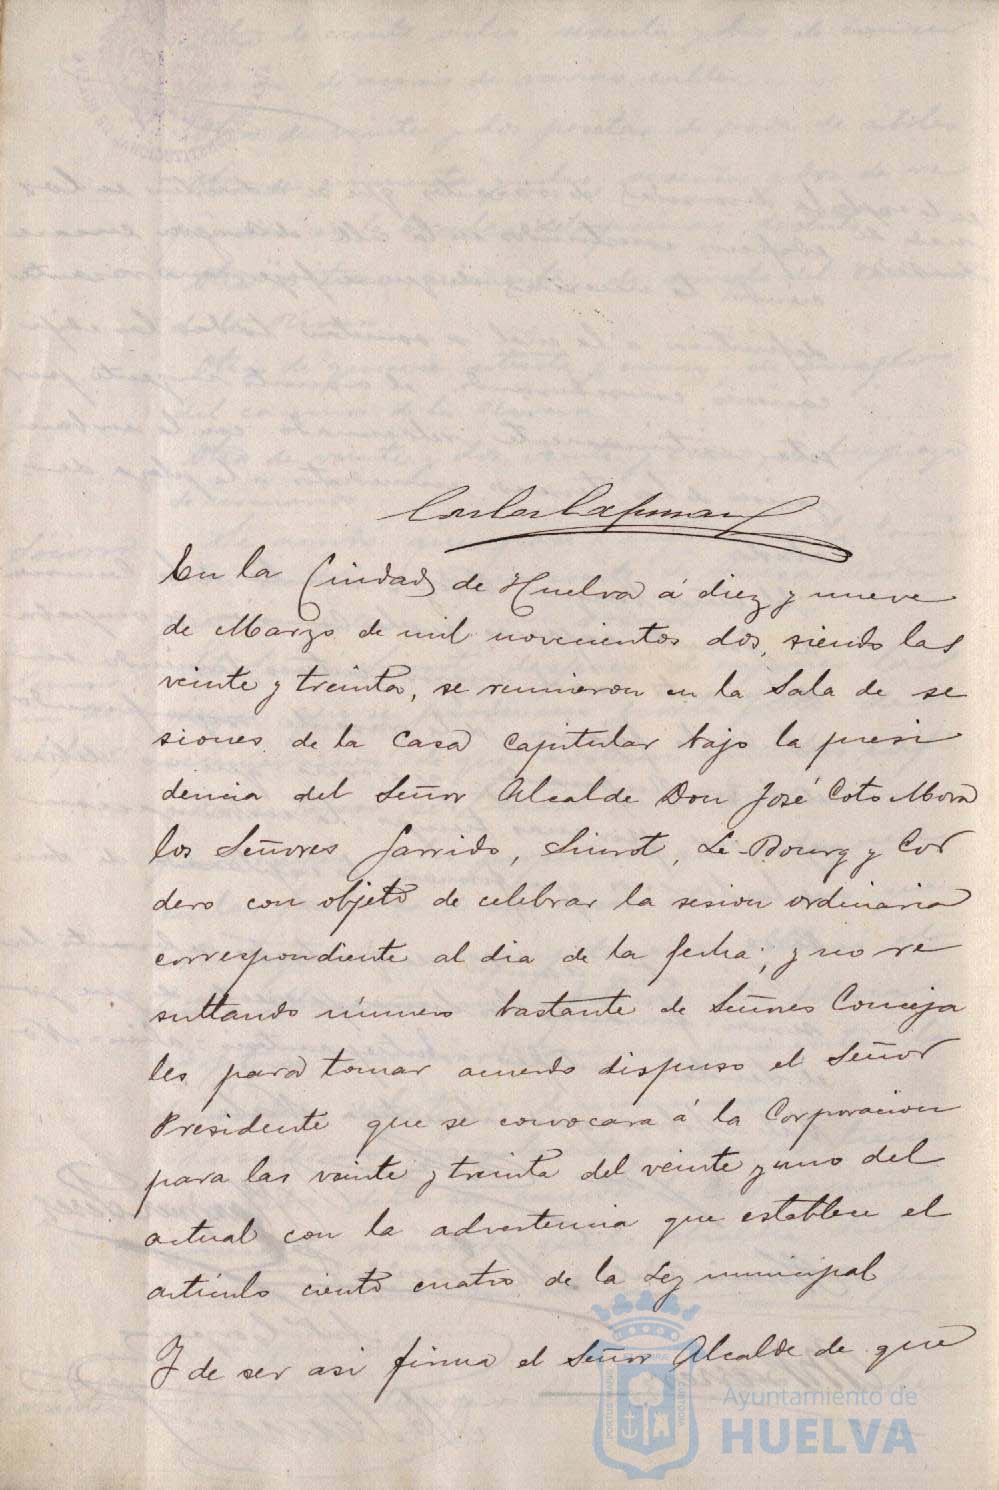 En la Ciudad de Huelva á diez y nueve
de Marzo de mil novecientos dos, siendo las
veinte y treinta, se reunieron en la Sala de se
siones de la Casa Capitular bajo la presi
dencia del Señor Alcalde Don José Coto Mora
los Señores Garrido, Siurot, Le-Bourg y Cor
dero con objeto de celebrar la sesion ordinaria
correspondiente al dia de la fecha; y no re
sultando número bastante de Señores Conceja
les para tomar acuerdo dispuso el Señor
Presidente que se convocara á la Corporacion
para las veinte y treinta del veinte y uno del
actual con la advertencia que establece el
artículo ciento cuatro de la Ley municipal
Y de ser asi firma el Señor Alcalde de que
Ayuntamiento de
HUELVA